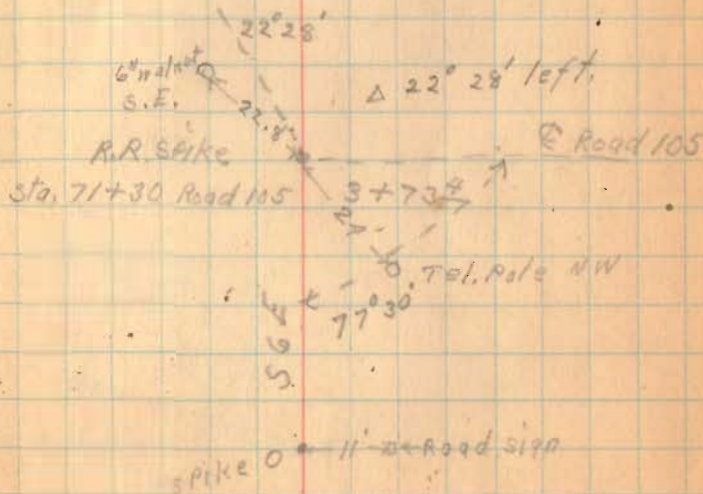 22° 28'
6" walnut
S.E.
Δ 22° 28' left.
22.8
R.R. Spike
℄ Road 105
Sta. 71+30 Road 105
3+73⁴
27
Tel. Pole NW
77° 30'
S 6 E
Spike 0 11' Road sign